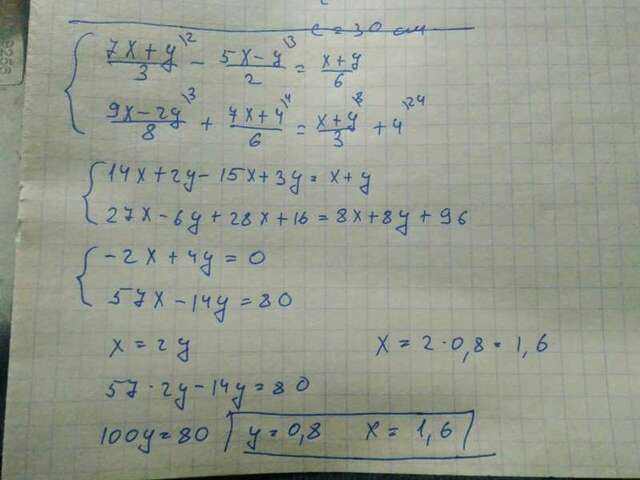 c = 30 см
(7x+y)/3 \2 − (5x−y)/2 \3 = (x+y)/6
(9x−2y)/8 \3 + (7x+4)/6 \4 = (x+y)/3 \8 + 4 \24
14x+2y−15x+3y=x+y
27x−6y+28x+16=8x+8y+96
−2x+4y=0
57x−14y=80
x=2y x=2·0,8=1,6
57·2y−14y=80
100y=80 y=0,8 x=1,6